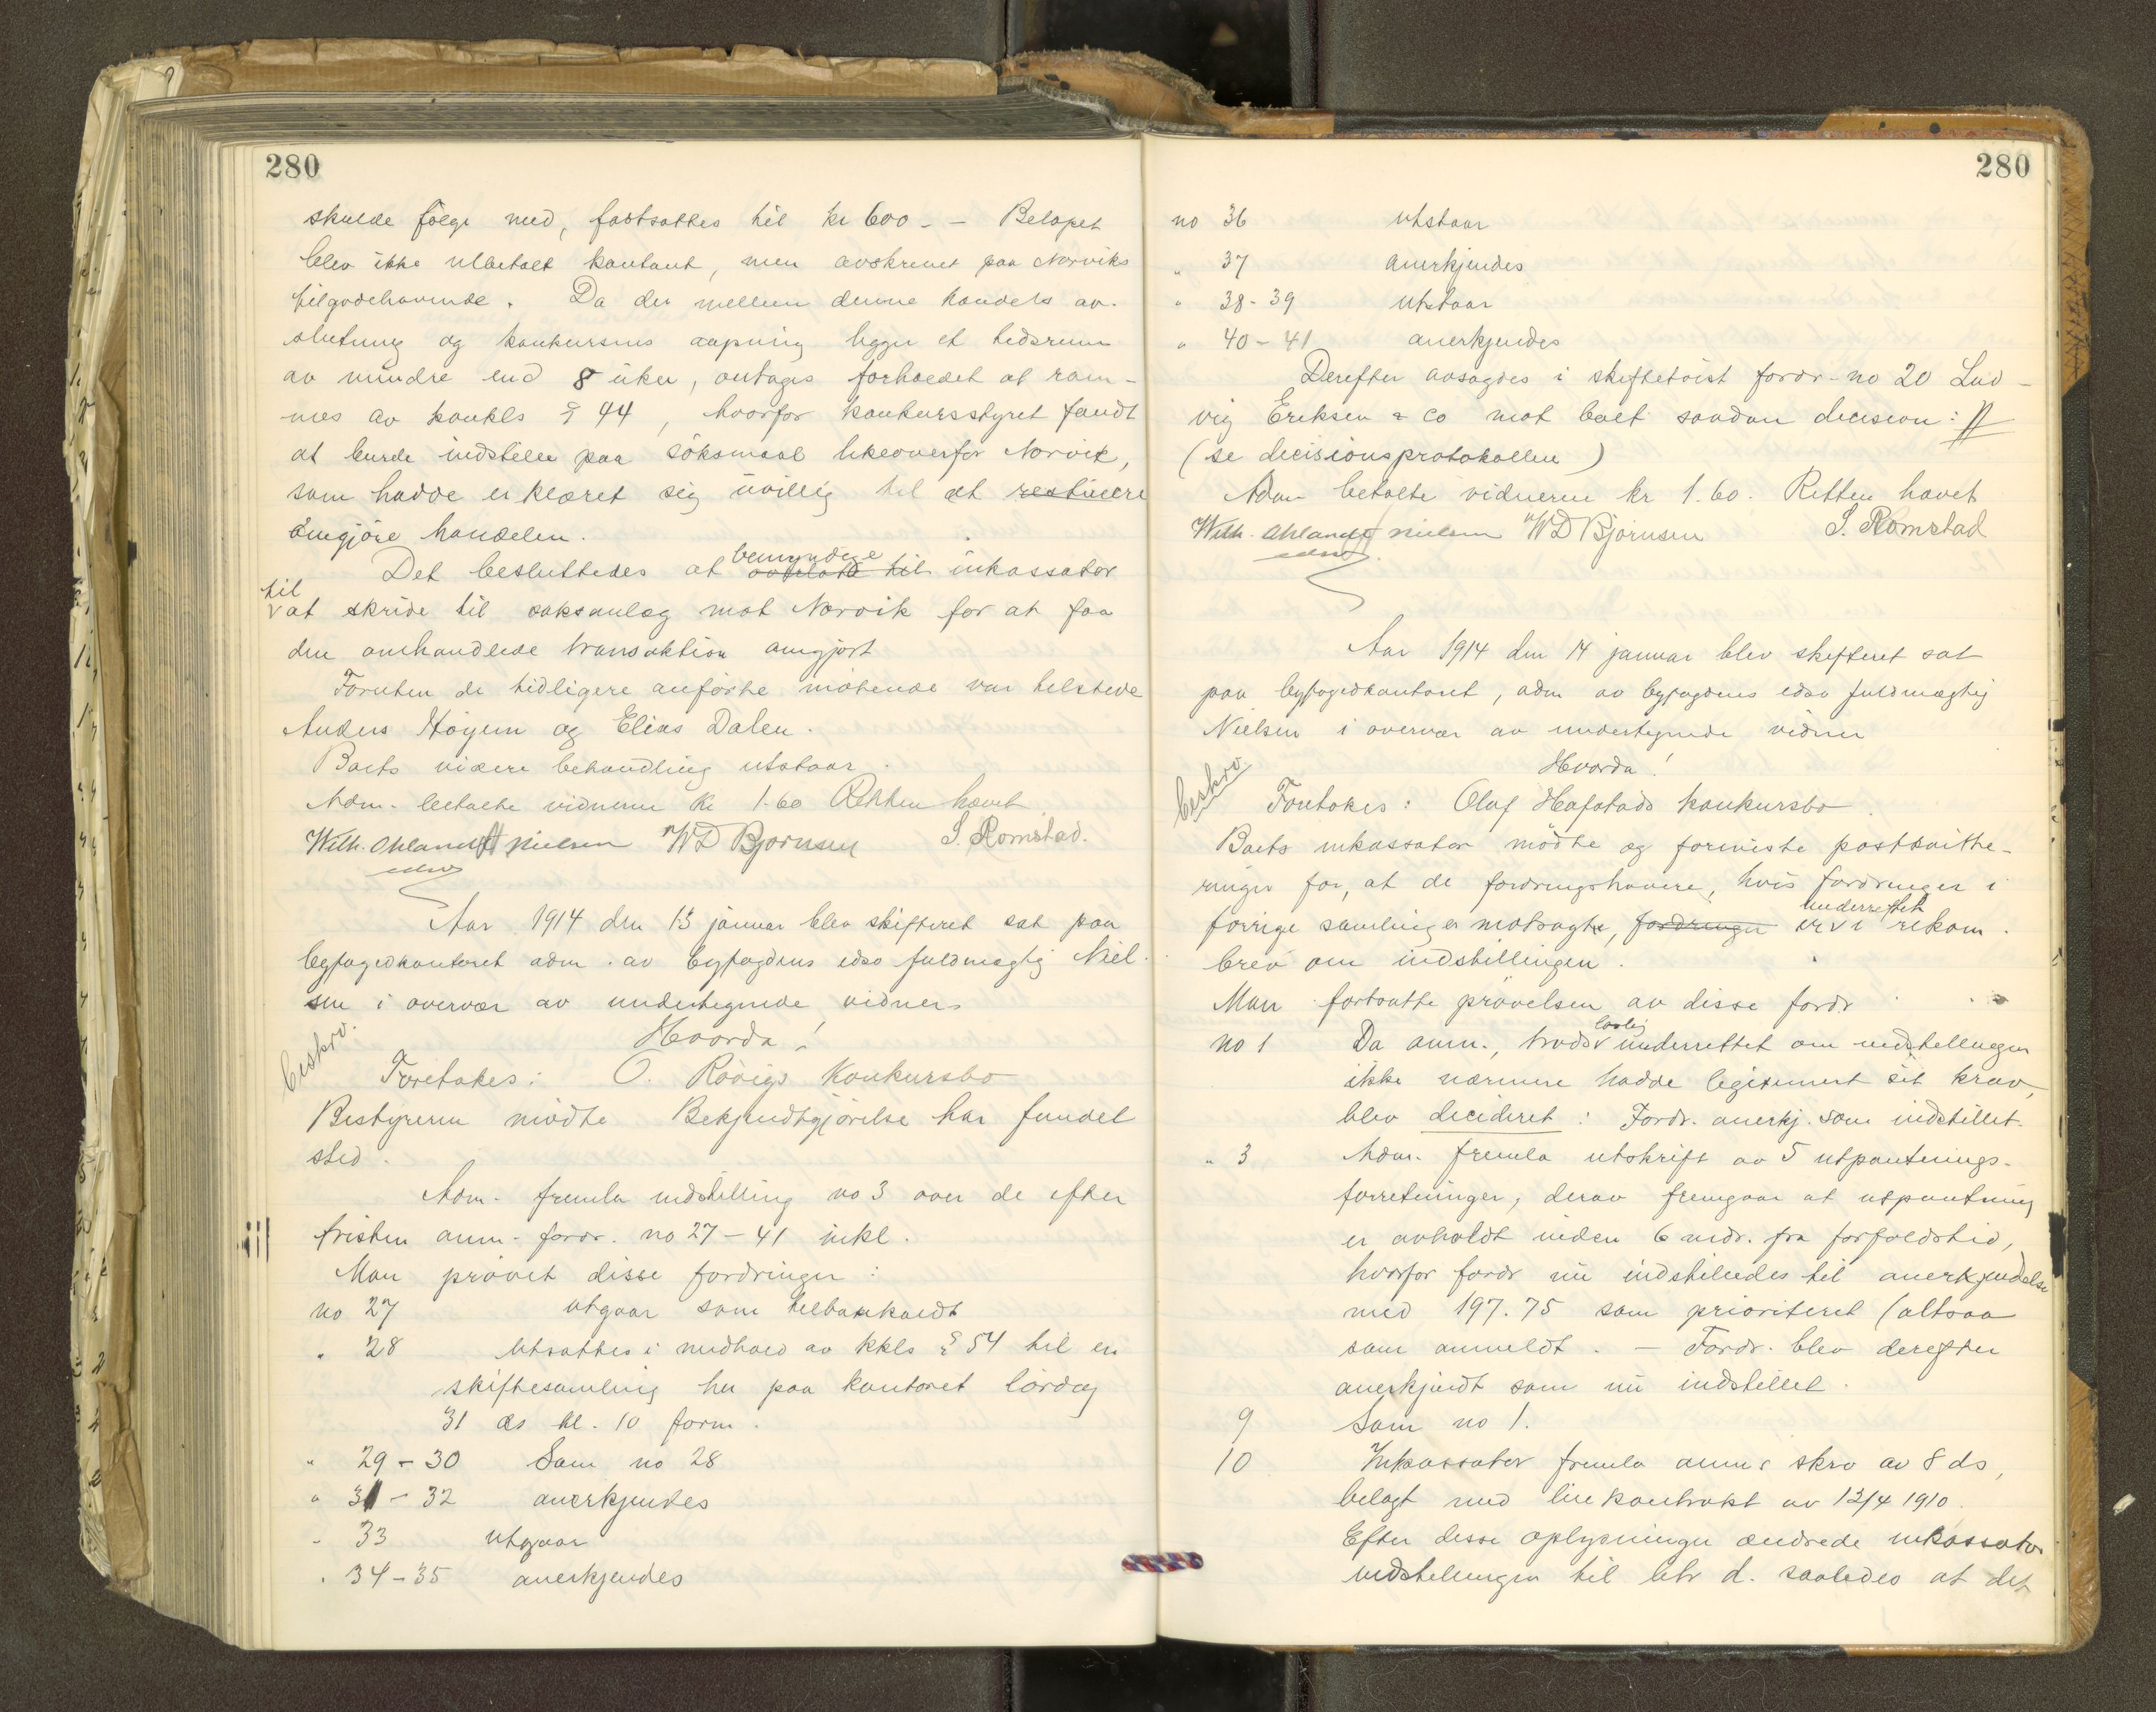 280
skulde følge med, fastsattes til kr 600.- — Beløpet
blev ikke utbetalt kontant, men avskrevet paa Norviks
tilgodehavende. Da der mellem denne handels av-
slutning og konkursens aapning ligger et tidsrum
av mindre end 8 uker, antages forholdet at ram-
mes av konkls § 44, hvorfor konkursstyret fandt
at burde indstille paa søksmaal likeoverfor Norvik,
som hadde erklæret sig uvillig til at restituere
omgjøre handelen.
Det besluttedes at bemyndige overlate til inkassator
til at skride til saksanlæg mot Norvik for at faa
den omhandlede transaktion omgjort
Foruten de tidligere anførte møtende var tilstede
Anders Høyem og Elias Dalen.
Boets videre behandling utstaar.
Adm. betalte vidnerne kr 1.60 Retten hævet
Wilh. Ohlandt Nielsen WD Bjørnsen S. Romstad.
edsv
Aar 1914 den 13 januar blev skifteret sat paa
byfogedkontoret adm. av byfogdens edsv fuldmægtig Niel-
sen i overvær av undertegnede vidner
Hvorda!
beskrv.
Foretokes: O. Røvigs Konkursbo
Bestyreren mødte Bekjendtgjørelse har fundet
sted.
Adm. fremla indstilling no 3 over de efter
fristen anm. fordr. no 27 – 41 inkl.
Man prøvet disse fordringer:
no 27 utgaar som tilbakekaldt
" 28 Utsattes i medhold av kkls § 54 til en
skiftesamling her paa kontoret lørdag
31 ds kl. 10 form.
" 29 – 30 Som no 28
" 31 – 32 anerkjendes
" 33 utgaar
" 34 – 35 anerkjendes
280
no 36 utstaar
" 37 anerkjendes
" 38 - 39 utstaar
" 40 – 41 anerkjendes
Derefter avsagdes i skiftetvist fordr. no 20 Lud-
vig Eriksen & Co mot boet saadan decision:
(se decisionsprotokollen)
Adm. betalte vidnerne kr 1.60. Retten hævet
Wilh. Ohlandt Nielsen WD Bjørnsen S. Romstad
edsv
Aar 1914 den 14 januar blev skifteret sat
paa byfogedkontoret, adm av byfogdens edsv fuldmægtig
Nielsen i overvær av undertegnede vidner
Hvorda!
beskrv
Foretokes: Olaf Hafstads konkursbo.
Boets inkassator mødte og foreviste postkvitte-
ringer for, at de fordringshavere, hvis fordringer i
forrige samling er motsagte, fordringer er underrettet i rekom.
brev om indstillingen.
Man fortsatte prøvelsen av disse fordr.
no 1 Da anm., trods lovlig underrettet om indstillingen
ikke nærmere hadde legitimert sit krav,
blev decideret: Fordr. anerkj. som indstillet.
" 3 Adm. fremla utskrift av 5 utpantnings-
forretninger, derav fremgaar at utpantning
er avholdt inden 6 mdr. fra forfaldstid,
hvorfor fordr nu indstilledes til anerkjendelse
med 197.75 som prioriteret (altsaa
som anmeldt. — Fordr. blev derefter
anerkjendt som nu indstillet.
9 Som no 1.
10 Inkassator fremla anm.s skrv av 8 ds,
belagt med leiekontrakt av 12/4 1910.
Efter disse oplysninger ændrede inkassator
indstillingen til litr d. saaledes at det